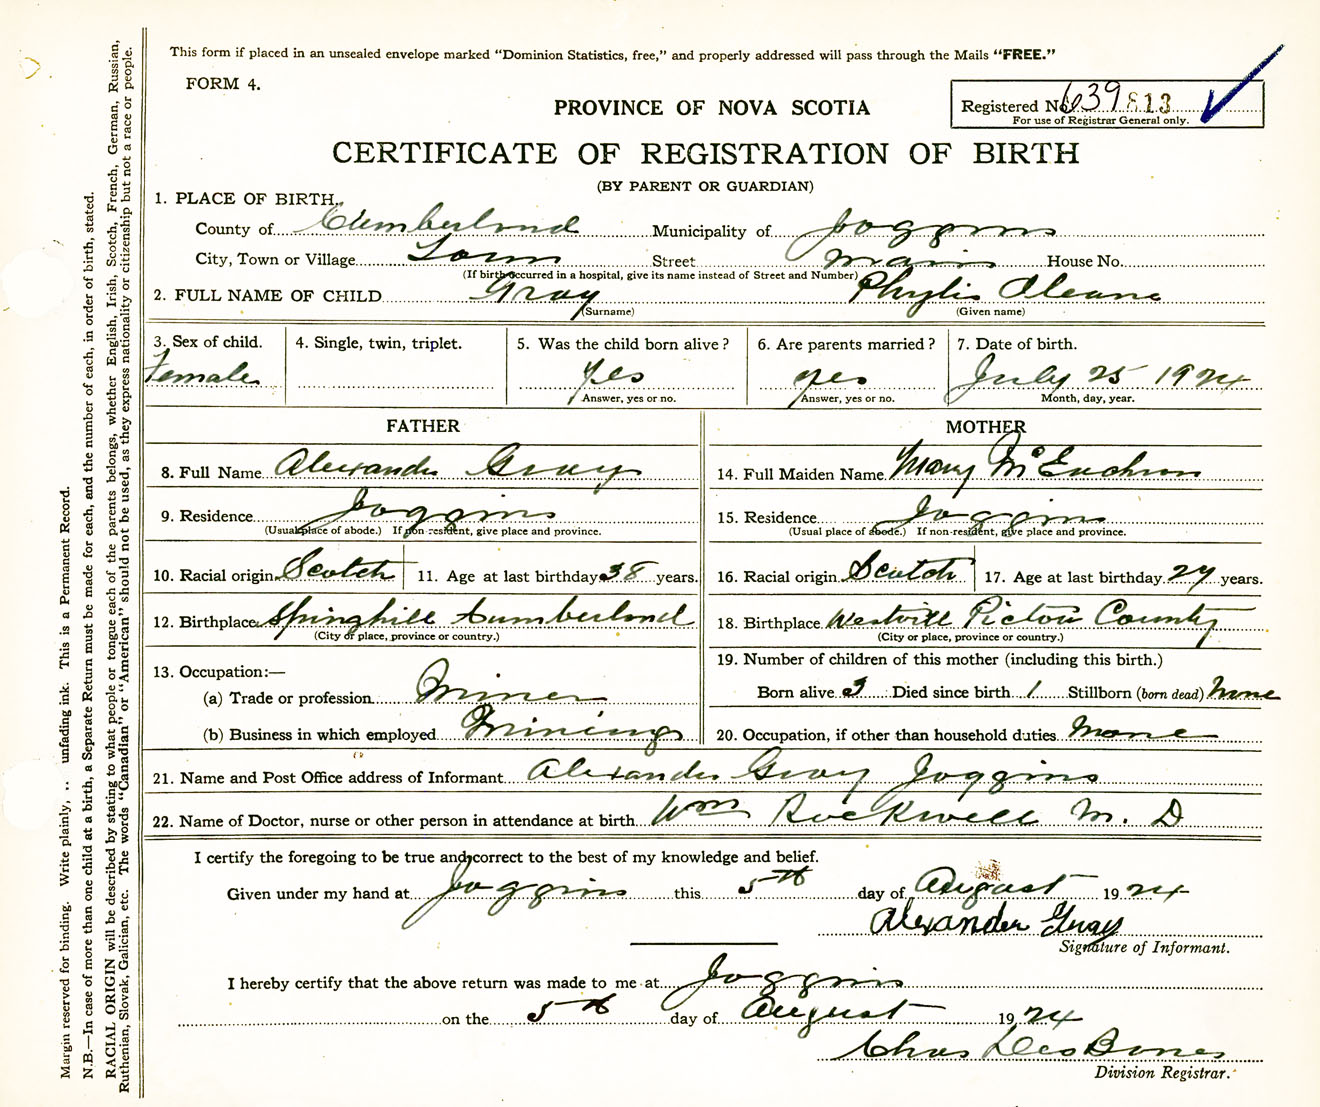 This form if placed in an unsealed envelope marked “Dominion Statistics, free,” and properly addressed will pass through the Mails “FREE.”
FORM 4.
PROVINCE OF NOVA SCOTIA
Registered No. 639813
For use of Registrar General only.
CERTIFICATE OF REGISTRATION OF BIRTH
(BY PARENT OR GUARDIAN)
1. PLACE OF BIRTH.
County of Cumberlnd Municipality of Joggins
City, Town or Village Town Street Main House No.
(If birth occurred in a hospital, give its name instead of Street and Number)
2. FULL NAME OF CHILD Gray Phylis Oleane
(Surname) (Given name)
3. Sex of child. 4. Single, twin, triplet. 5. Was the child born alive? 6. Are parents married? 7. Date of birth.
Female yes yes July 25 1924
Answer, yes or no. Answer, yes or no. Month, day, year.
FATHER MOTHER
8. Full Name Alexander Gray 14. Full Maiden Name Mary McEachron
9. Residence Joggins 15. Residence Joggins
(Usual place of abode.) If non-resident, give place and province. (Usual place of abode.) If non-resident, give place and province.
10. Racial origin Scotch 11. Age at last birthday 38 years. 16. Racial origin Scotch 17. Age at last birthday years.
12. Birthplace Springhill Cumberlnd 18. Birthplace Westvill Pictou County
(City or place, province or country.) (City or place, province or country.)
13. Occupation:— 19. Number of children of this mother (including this birth.)
(a) Trade or profession Miner Born alive 3 Died since birth 1 Stillborn (born dead) None
(b) Business in which employed Mining 20. Occupation, if other than household duties None
21. Name and Post Office address of Informant Alexander Gray Joggins
22. Name of Doctor, nurse or other person in attendance at birth Wm Rockwell M. D
I certify the foregoing to be true and correct to the best of my knowledge and belief.
Given under my hand at Joggins this 5th day of August 1924
Alexander Gray
Signature of Informant.
I hereby certify that the above return was made to me at Joggins
on the 5th day of August 1924
Chas DesBones
Division Registrar.
Margin reserved for binding. Write plainly, .. unfading ink. This is a Permanent Record.
N.B.—In case of more than one child at a birth, a Separate Return must be made for each, and the number of each, in order of birth, stated.
RACIAL ORIGIN will be described by stating to what people or tongue each of the parents belongs, whether English, Irish, Scotch, French, German, Russian,
Ruthenian, Slovak, Galician, etc. The words “Canadian” or “American” should not be used, as they express nationality or citizenship but not a race or people.